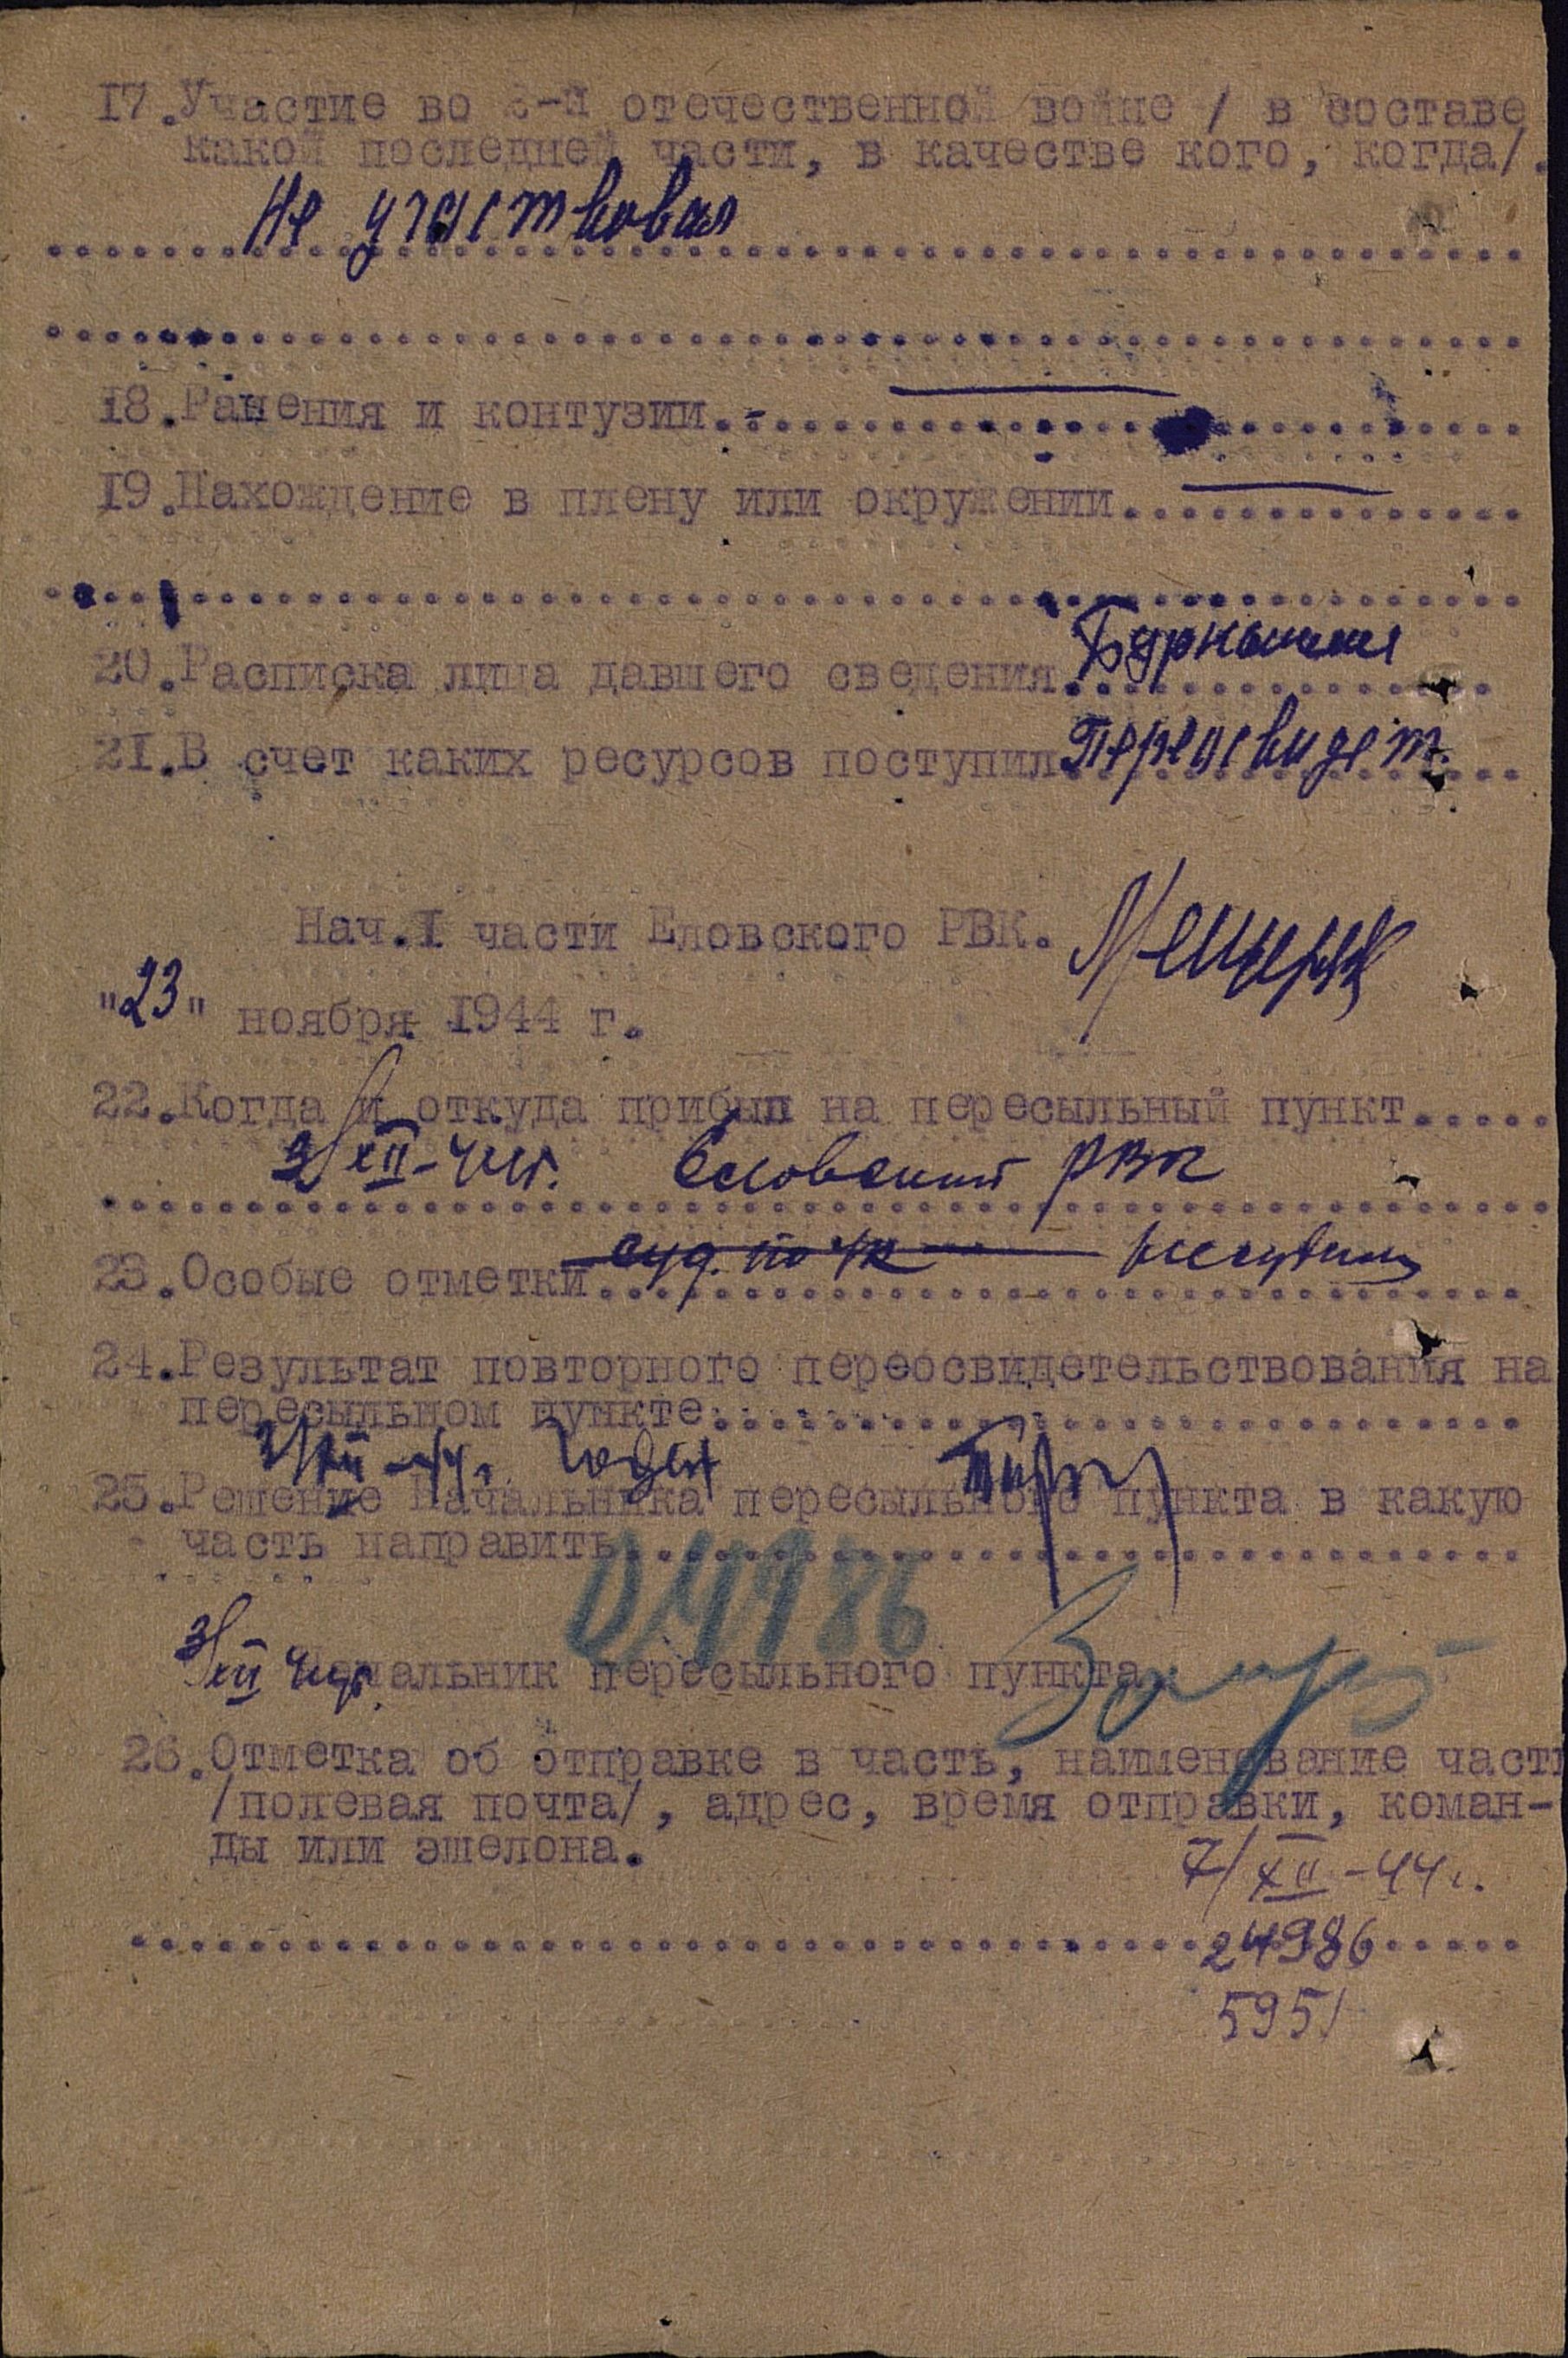 17.Участие во 2-й отечественной войне / в составе
какой последней части, в качестве кого, когда/.
Не участвовал
18.Ранения и контузии.-
19.Нахождение в плену или окружении
20.Расписка лица давшего сведения
21.В счет каких ресурсов поступил Переосвидет.
Нач.I части Еловского РВК.
"23" ноября 1944 г.
22.Когда и откуда прибыл на пересыльный пункт
2/XII-44г. Еловский РВК
23.Особые отметки суд. по УК
24.Результат повторного переосвидетельствования на
пересыльном пункте
2/XII-44г. Годен
25.Решение Начальника пересыльного пункта в какую
часть направить
24986
3/XII 44г. Начальник пересыльного пункта
26.Отметка об отправке в часть, наименование части
/полевая почта/, адрес, время отправки, коман-
ды или эшелона.
7/XII-44г.
24986
5951